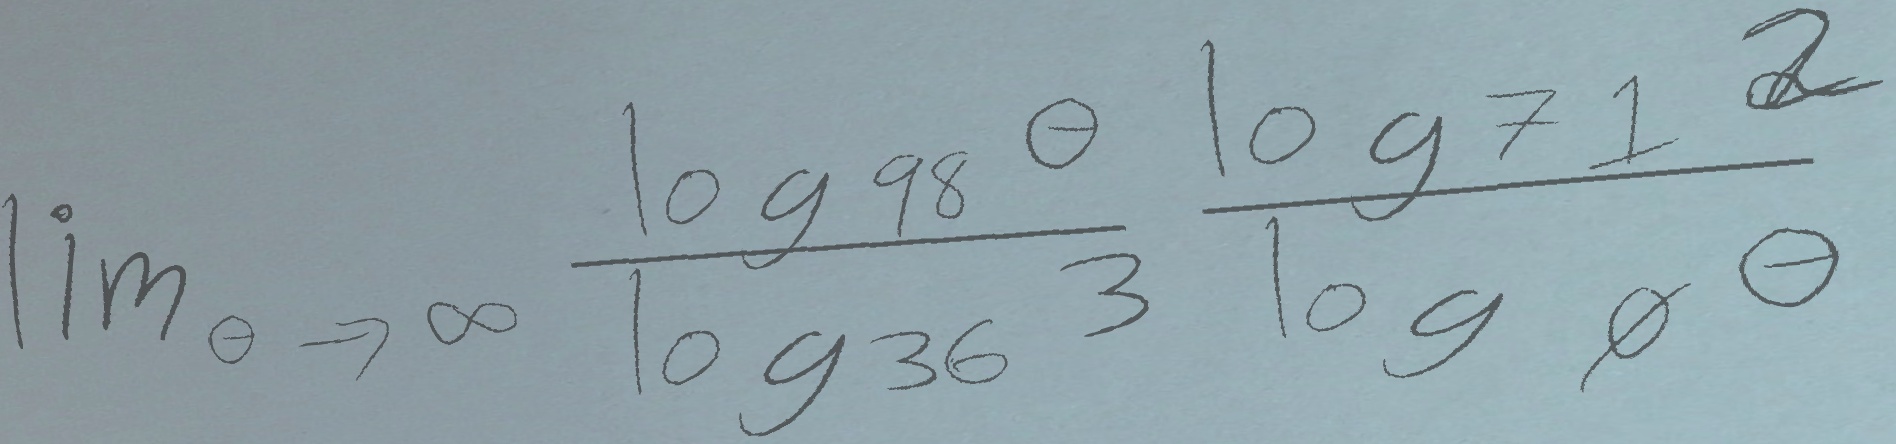 \lim_{\theta \to \infty} \frac{\log_{98} \theta}{\log_{36} 3} \frac{\log_{71} 2}{\log_{\phi} \theta}